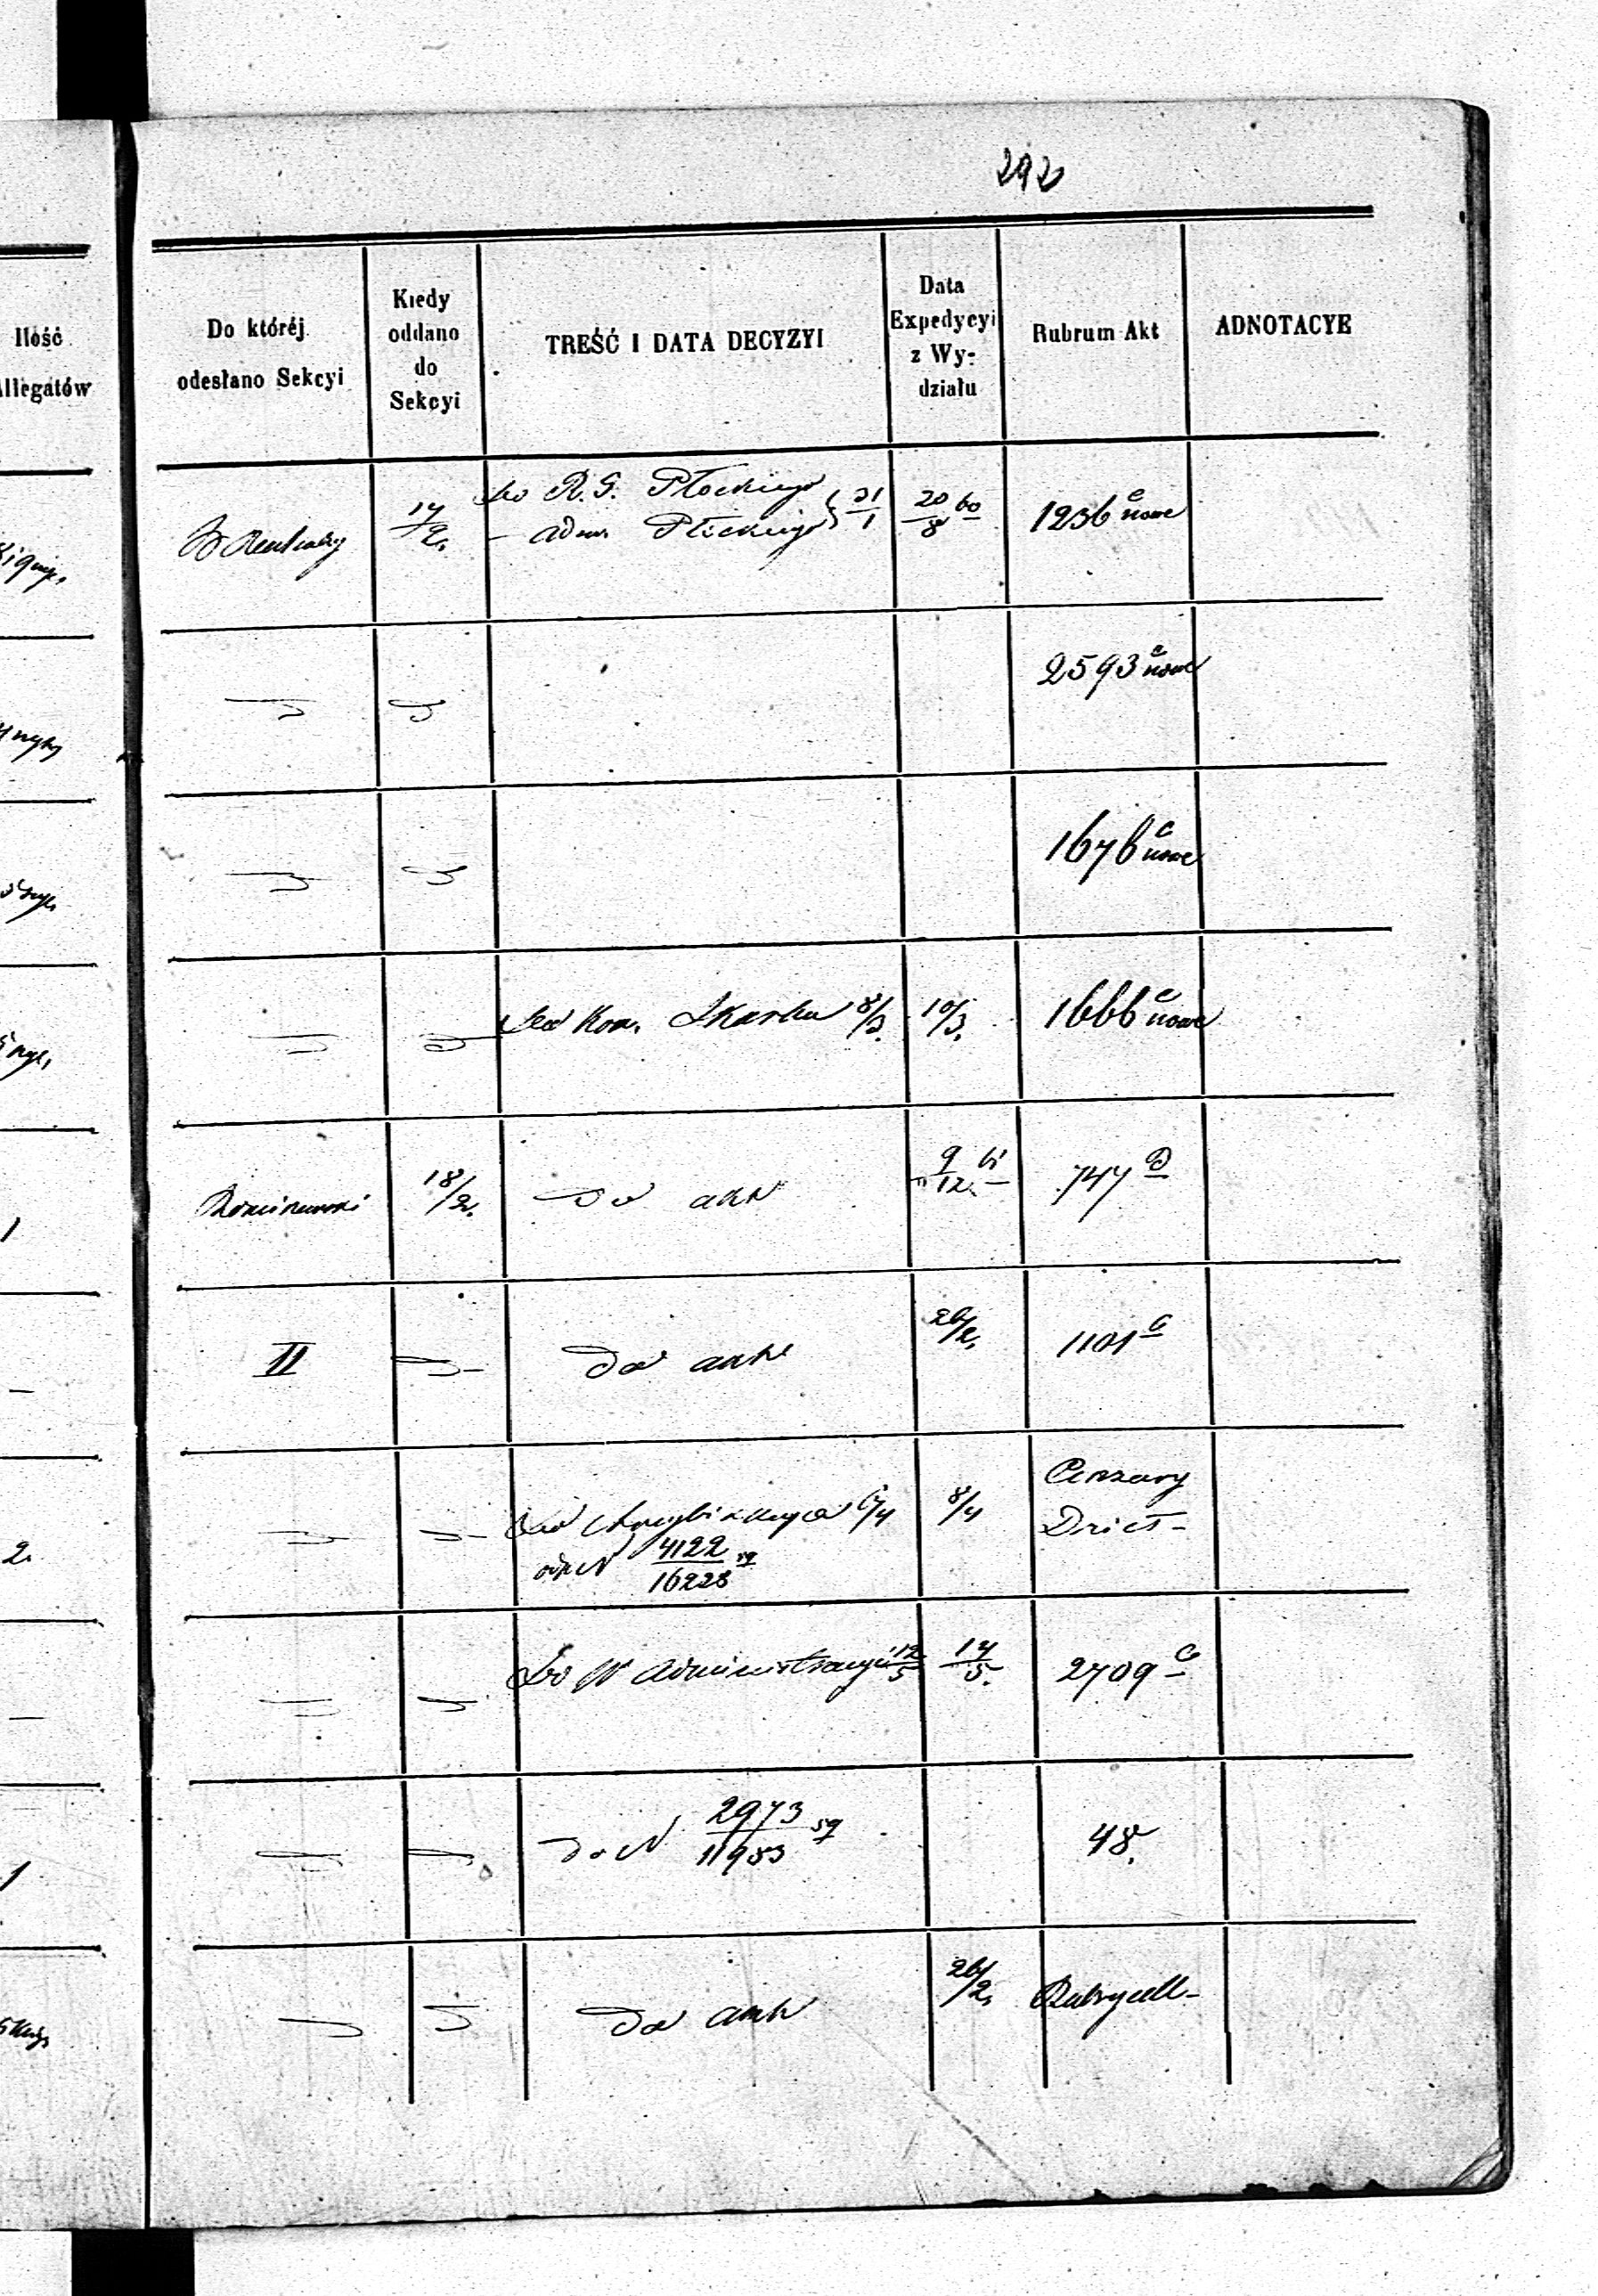 292
Ilość
Allegatów
Do któréj
odesłano Sekcyi
Kiedy
oddano
do
Sekcyi
TREŚĆ I DATA DECYZYI
Data
Expedycyi
z Wy-
działu
Rubrum Akt
ADNOTACYE
do R. G. Płockiego
adm. Płockiego 31/1
17/2.
20/8 60
1236 c nowe
2593 c nowe
1676 c nowe
Do Kom. Skarbu 8/3. 10/3. 1666 c nowe
1
18/2. Do akt 9/12. 61 747 D
II Do akt 26/2. 1101 c
2.
Do 6/4 8/4 Cenzury
Dzieł -
do N 4122/16228 59
Do W Administracyi 12/5 14/5. 2709 c
1
do N 2973/11983 59 48.
Do akt 26/2. Rubrycell -